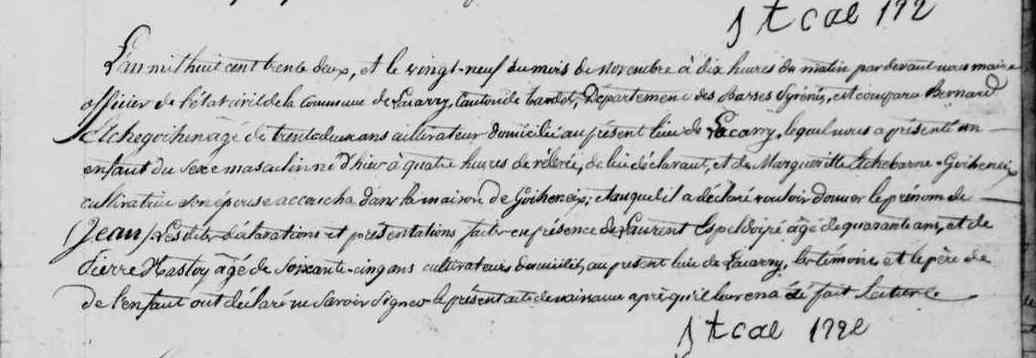 L'an mil huit cent trente deux, et le vingt-neuf du mois de novembre à dix heures du matin par devant nous maire
officier de l'état civil de la commune de Lacarry, Canton de tardets, Département des Basses Pyrénés, est comparu Bernard
Etchegoihen âgé de trente deux ans cultivateur domicilié au présent lieu de Lacarry, lequel nous a présenté un
enfant du sexe masculin né d'hier à quatre heures de rélevée, de lui déclarant, et de Margueritte Etchebarne-Goiheneix
cultivatrice son épouse accoucha dans la maison de Goiheneix; et auquel il a déclaré vouloir donner le prénom de
(Jean) Les dites déclarations et présentations faites en présence de Laurent Espeldoipé âgé de quarante ans, et de
Pierre Hastoy âgé de soixante-cinq ans cultivateurs domiciliés au présent lieu de Lacarry, les témoins et le père de
de l'enfant ont déclaré ne savoir signer le présent acte de naissance après qu'il leur en a été fait Lecture